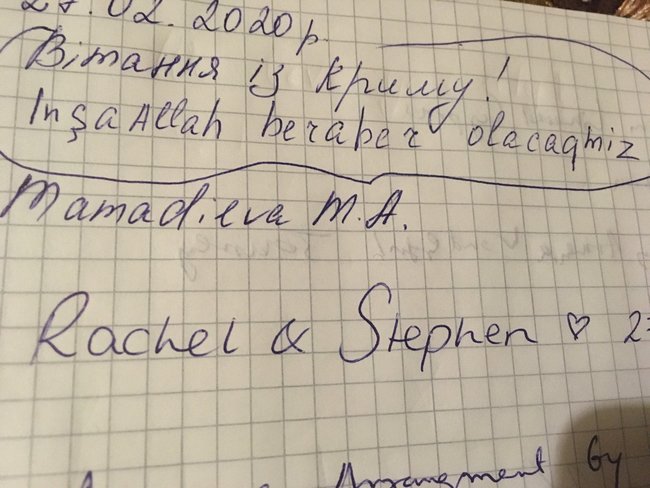 27.02.2020 р.
Вітання із Криму!
InşaAllah beraber olacaqmiz
Mamadieva M.A.
Rachel & Stephen ♡ 2
Arrangment by